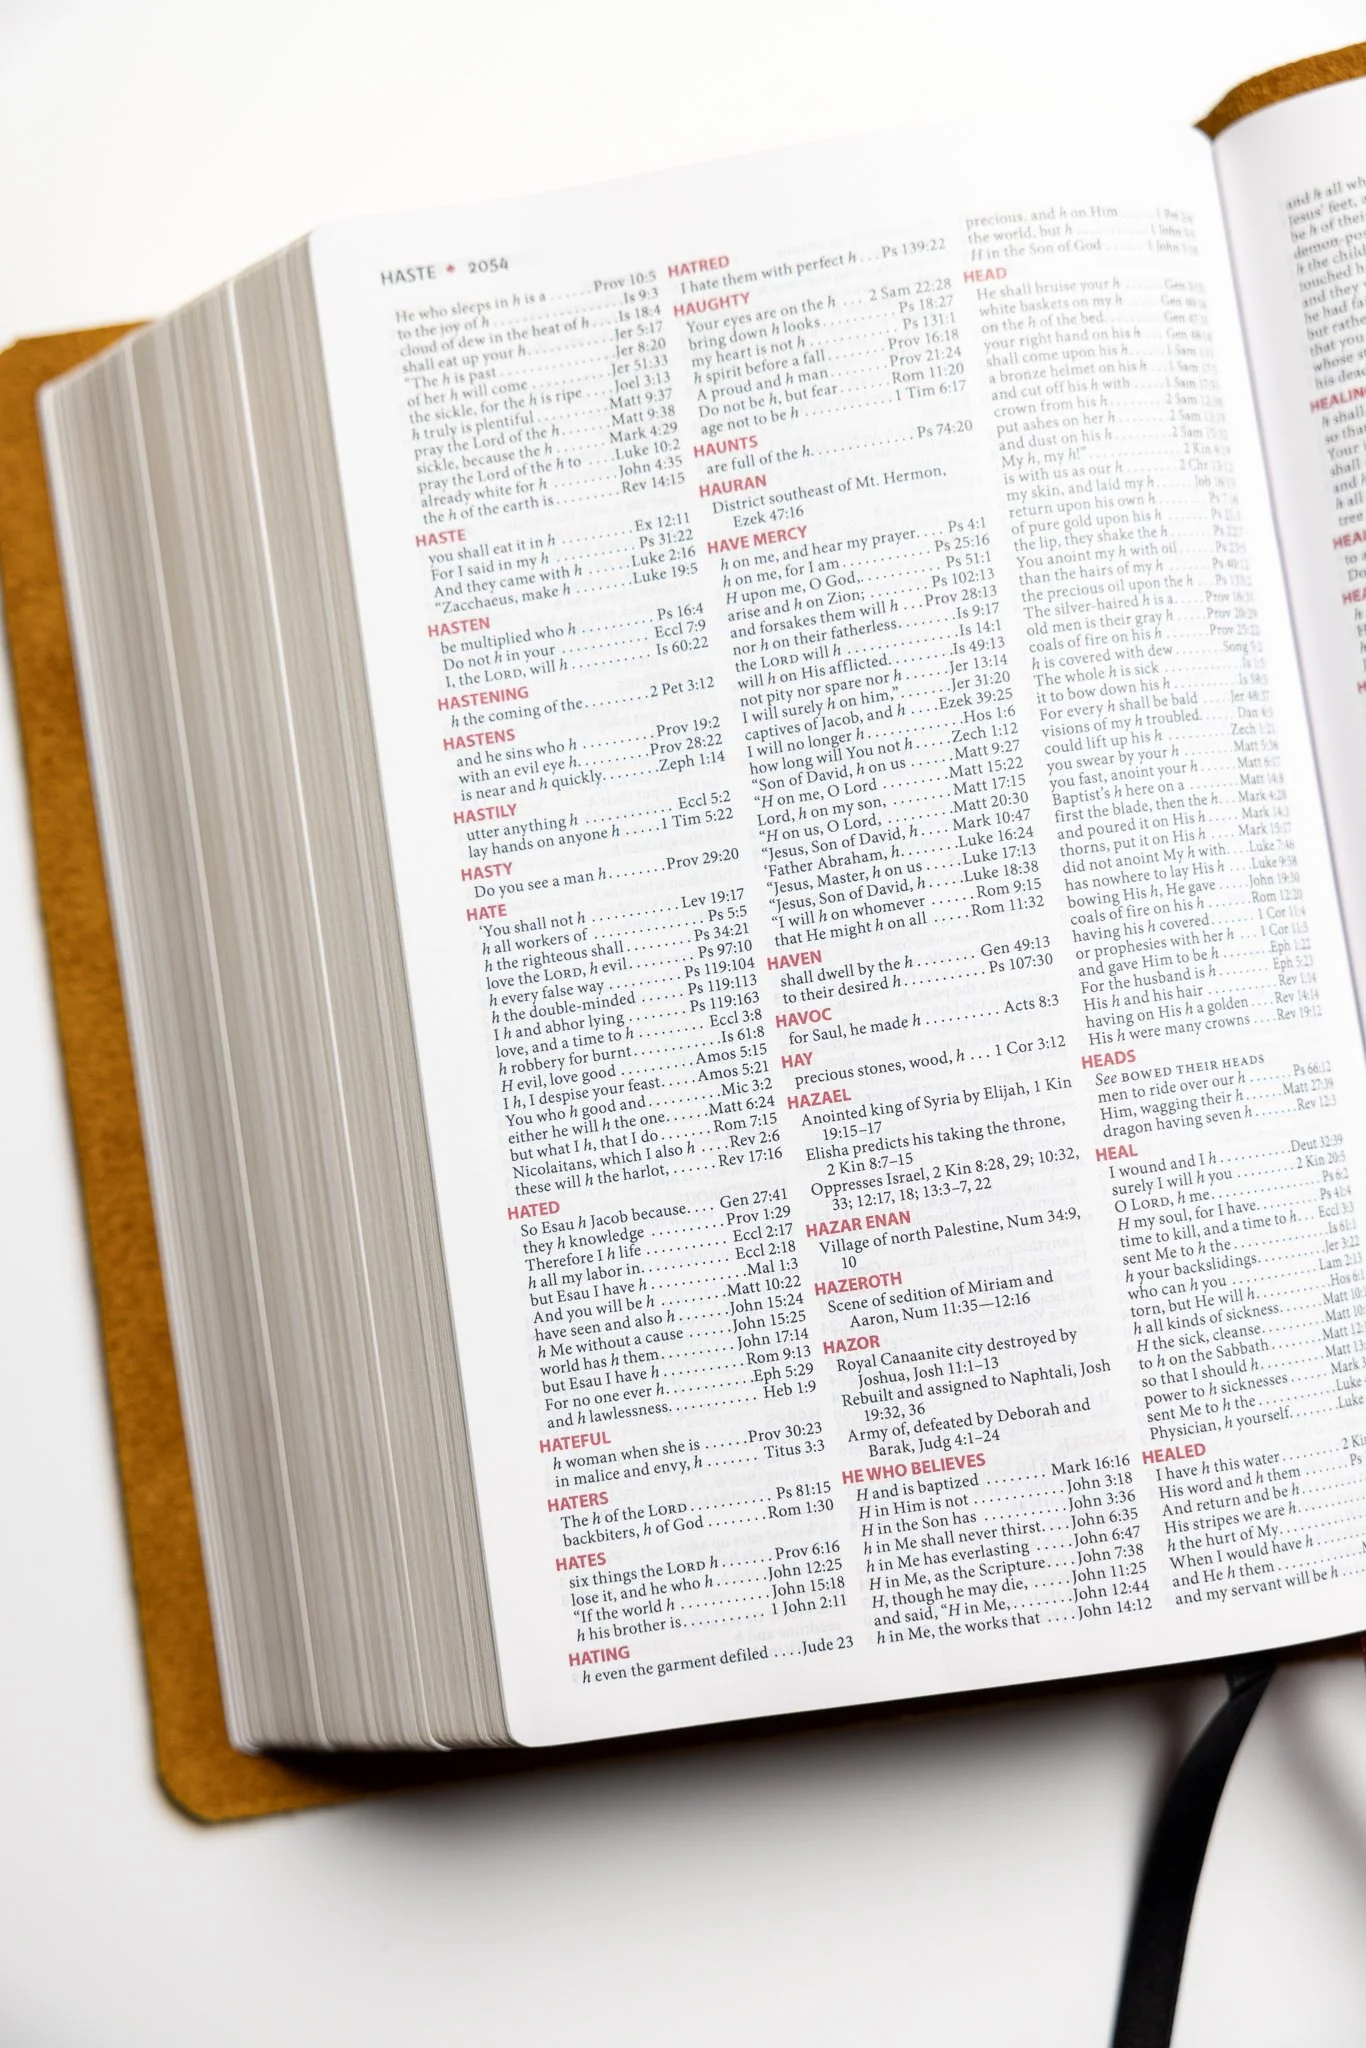 HASTE ♦ 2054
He who sleeps in h is a . . . . . . Prov 10:5
to the joy of h . . . . . . Is 9:3
cloud of dew in the heat of h . . . . Is 18:4
shall eat up your h . . . . . . Jer 5:17
"The h is past . . . . . . Jer 8:20
of her h will come . . . . . . Jer 51:33
the sickle, for the h is ripe . . . . Joel 3:13
h truly is plentiful . . . . . . Matt 9:37
pray the Lord of the h . . . . . . Matt 9:38
sickle, because the h . . . . . . Mark 4:29
pray the Lord of the h to . . . . Luke 10:2
already white for h . . . . . . John 4:35
the h of the earth is . . . . . . Rev 14:15
HASTE
you shall eat it in h . . . . . . Ex 12:11
For I said in my h . . . . . . Ps 31:22
And they came with h . . . . . . Luke 2:16
"Zacchaeus, make h . . . . . . Luke 19:5
HASTEN
be multiplied who h . . . . . . Ps 16:4
Do not h in your . . . . . . Eccl 7:9
I, the LORD, will h . . . . . . Is 60:22
HASTENING
h the coming of the . . . . . . 2 Pet 3:12
HASTENS
and he sins who h . . . . . . Prov 19:2
with an evil eye h . . . . . . Prov 28:22
is near and h quickly . . . . . . Zeph 1:14
HASTILY
utter anything h . . . . . . Eccl 5:2
lay hands on anyone h . . . . . 1 Tim 5:22
HASTY
Do you see a man h . . . . . . Prov 29:20
HATE
'You shall not h . . . . . . Lev 19:17
h all workers of . . . . . . Ps 5:5
h the righteous shall . . . . . . Ps 34:21
love the LORD, h evil . . . . . . Ps 97:10
h every false way . . . . . . Ps 119:104
h the double-minded . . . . . . Ps 119:113
I h and abhor lying . . . . . . Ps 119:163
love, and a time to h . . . . . . Eccl 3:8
h robbery for burnt . . . . . . Is 61:8
H evil, love good . . . . . . Amos 5:15
I h, I despise your feast . . . . . Amos 5:21
You who h good and . . . . . . Mic 3:2
either he will h the one . . . . . Matt 6:24
but what I h, that I do . . . . . . Rom 7:15
Nicolaitans, which I also h . . . . Rev 2:6
these will h the harlot, . . . . . . Rev 17:16
HATED
So Esau h Jacob because . . . . Gen 27:41
they h knowledge . . . . . . Prov 1:29
Therefore I h life . . . . . . Eccl 2:17
h all my labor in . . . . . . Eccl 2:18
but Esau I have h . . . . . . Mal 1:3
And you will be h . . . . . . Matt 10:22
have seen and also h . . . . . . John 15:24
h Me without a cause . . . . . . John 15:25
world has h them . . . . . . John 17:14
but Esau I have h . . . . . . Rom 9:13
For no one ever h . . . . . . Eph 5:29
and h lawlessness . . . . . . Heb 1:9
HATEFUL
h woman when she is . . . . . . Prov 30:23
in malice and envy, h . . . . . . Titus 3:3
HATERS
The h of the LORD . . . . . . Ps 81:15
backbiters, h of God . . . . . . Rom 1:30
HATES
six things the LORD h . . . . . . Prov 6:16
lose it, and he who h . . . . . . John 12:25
"If the world h . . . . . . John 15:18
h his brother is . . . . . . 1 John 2:11
HATING
h even the garment defiled . . . . Jude 23
HATRED
I hate them with perfect h . . . Ps 139:22
HAUGHTY
Your eyes are on the h . . . 2 Sam 22:28
bring down h looks . . . . . . Ps 18:27
my heart is not h . . . . . . Ps 131:1
h spirit before a fall . . . . . . Prov 16:18
A proud and h man . . . . . . Prov 21:24
Do not be h, but fear . . . . . . Rom 11:20
age not to be h . . . . . . 1 Tim 6:17
HAUNTS
are full of the h . . . . . . Ps 74:20
HAURAN
District southeast of Mt. Hermon,
Ezek 47:16
HAVE MERCY
h on me, and hear my prayer . . . . Ps 4:1
h on me, for I am . . . . . . Ps 25:16
H upon me, O God, . . . . . . Ps 51:1
arise and h on Zion; . . . . . . Ps 102:13
and forsakes them will h . . . Prov 28:13
nor h on their fatherless . . . . . . Is 9:17
the LORD will h . . . . . . Is 14:1
will h on His afflicted . . . . . . Is 49:13
not pity nor spare nor h . . . . . Jer 13:14
I will surely h on him," . . . . . . Jer 31:20
captives of Jacob, and h . . . . Ezek 39:25
I will no longer h . . . . . . Hos 1:6
how long will You not h . . . . . Zech 1:12
"Son of David, h on us . . . . . . Matt 9:27
"H on me, O Lord . . . . . . Matt 15:22
Lord, h on my son, . . . . . . Matt 17:15
"H on us, O Lord, . . . . . . Matt 20:30
"Jesus, Son of David, h . . . . Mark 10:47
'Father Abraham, h . . . . . . Luke 16:24
"Jesus, Master, h on us . . . . . Luke 17:13
"Jesus, Son of David, h . . . . . Luke 18:38
"I will h on whomever . . . . . . Rom 9:15
that He might h on all . . . . . Rom 11:32
HAVEN
shall dwell by the h . . . . . . Gen 49:13
to their desired h . . . . . . Ps 107:30
HAVOC
for Saul, he made h . . . . . . Acts 8:3
HAY
precious stones, wood, h . . . 1 Cor 3:12
HAZAEL
Anointed king of Syria by Elijah, 1 Kin
19:15–17
Elisha predicts his taking the throne,
2 Kin 8:7–15
Oppresses Israel, 2 Kin 8:28, 29; 10:32,
33; 12:17, 18; 13:3–7, 22
HAZAR ENAN
Village of north Palestine, Num 34:9,
10
HAZEROTH
Scene of sedition of Miriam and
Aaron, Num 11:35—12:16
HAZOR
Royal Canaanite city destroyed by
Joshua, Josh 11:1–13
Rebuilt and assigned to Naphtali, Josh
19:32, 36
Army of, defeated by Deborah and
Barak, Judg 4:1–24
HE WHO BELIEVES
H and is baptized . . . . . . Mark 16:16
H in Him is not . . . . . . John 3:18
H in the Son has . . . . . . John 3:36
h in Me shall never thirst . . . . John 6:35
h in Me has everlasting . . . . . John 6:47
H in Me, as the Scripture . . . . John 7:38
H, though he may die, . . . . . John 11:25
and said, "H in Me, . . . . . . John 12:44
h in Me, the works that . . . . John 14:12
precious, and h on Him
the world, but h
H in the Son of God
HEAD
He shall bruise your h
white baskets on my h
on the h of the bed
your right hand on his h
shall come upon his h
a bronze helmet on his h
and cut off his h with
crown from his h
put ashes on her h
and dust on his h
My h, my h!"
is with us as our h
my skin, and laid my h
return upon his own h
of pure gold upon his h
the lip, they shake the h
You anoint my h with oil
than the hairs of my h
the precious oil upon the h
The silver-haired h is a . . . . Prov 16:31
old men is their gray h . . . . Prov 20:29
coals of fire on his h . . . . . . Prov 25:22
h is covered with dew . . . . . . Song 5:2
The whole h is sick . . . . . . Is 1:5
it to bow down his h . . . . . . Is 58:5
For every h shall be bald . . . . Jer 48:37
visions of my h troubled . . . . . Dan 4:5
could lift up his h . . . . . . Zech 1:21
you swear by your h . . . . . . Matt 5:36
you fast, anoint your h . . . . . Matt 6:17
Baptist's h here on a . . . . . . Matt 14:8
first the blade, then the h . . . Mark 4:28
and poured it on His h . . . . Mark 14:3
thorns, put it on His h . . . . Mark 15:17
did not anoint My h with . . . Luke 7:46
has nowhere to lay His h . . . . Luke 9:58
bowing His h, He gave . . . . . John 19:30
coals of fire on his h . . . . . . Rom 12:20
having his h covered . . . . . . 1 Cor 11:4
or prophesies with her h . . . . 1 Cor 11:5
and gave Him to be h . . . . . . Eph 1:22
For the husband is h . . . . . . Eph 5:23
His h and his hair . . . . . . Rev 1:14
having on His h a golden . . . . Rev 14:14
His h were many crowns . . . . Rev 19:12
HEADS
See BOWED THEIR HEADS
men to ride over our h . . . . . . Ps 66:12
Him, wagging their h . . . . . . Matt 27:39
dragon having seven h . . . . . . Rev 12:3
HEAL
I wound and I h . . . . . . Deut 32:39
surely I will h you . . . . . . 2 Kin 20:5
O LORD, h me . . . . . . Ps 6:2
H my soul, for I have . . . . . . Ps 41:4
time to kill, and a time to h . . . Eccl 3:3
sent Me to h the . . . . . . Is 61:1
h your backslidings . . . . . . Jer 3:22
who can h you . . . . . . Lam 2:13
torn, but He will h . . . . . . Hos 6:1
h all kinds of sickness . . . . . . Matt
H the sick, cleanse . . . . . . Matt
to h on the Sabbath . . . . . . Matt
so that I should h . . . . . . Matt
power to h sicknesses . . . . . . Mark
sent Me to h the . . . . . . Luke
Physician, h yourself . . . . . . Luke
HEALED
I have h this water . . . . . . 2 Kin
His word and h them . . . . . . Ps
And return and be h
His stripes we are h
h the hurt of My
When I would have h
and He h them
and my servant will be h
and h all
Jesus' feet,
be h of their
demon-pos
h the child
touched h
and they
he had fa
but rathe
that you
whose
his dea
HEALING
h shall
so that
Your
shall
and h
h all
tree